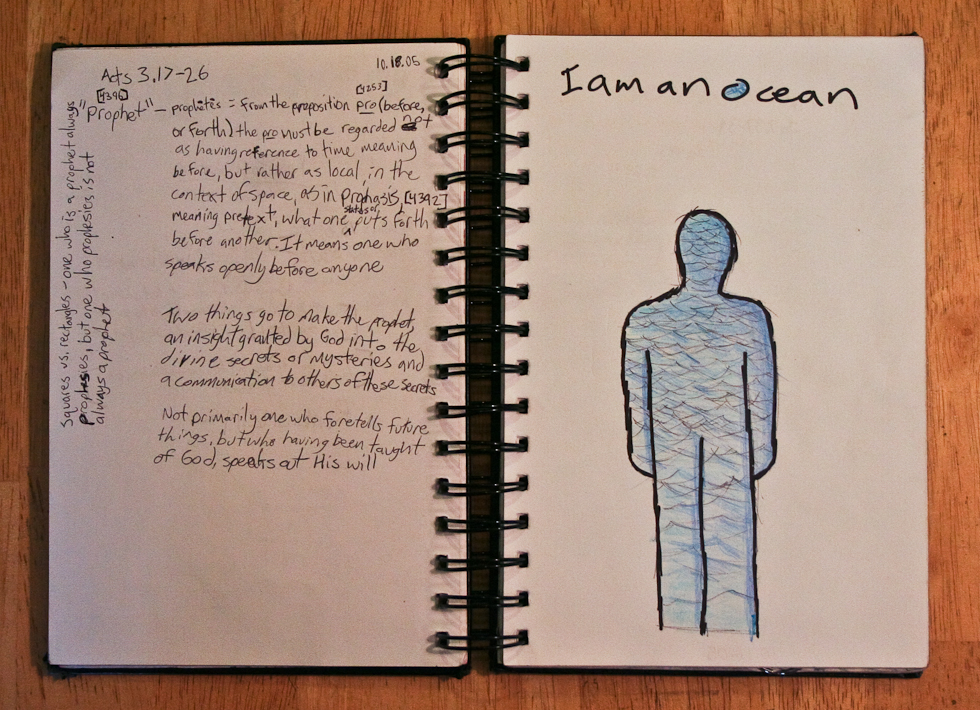 10.18.05
Acts 3.17-26
[4396]
[4253]
"Prophet" - prophētēs = from the proposition pro (before,
or forth) the pro must be regarded not
as having reference to time meaning
before, but rather as local, in the
context of space, as in Prophasis, [4392]
meaning pretext, what one puts forth
status or
before another. It means one who
speaks openly before anyone
Two things go to make the prophet,
an insight granted by God into the
divine secrets or mysteries and
a communication to others of these secrets
Not primarily one who foretells future
things, but who having been taught
of God, speaks out His will
Squares vs. rectangles - one who is a prophet always
prophesies, but one who prophesies is not
always a prophet
I am an ocean